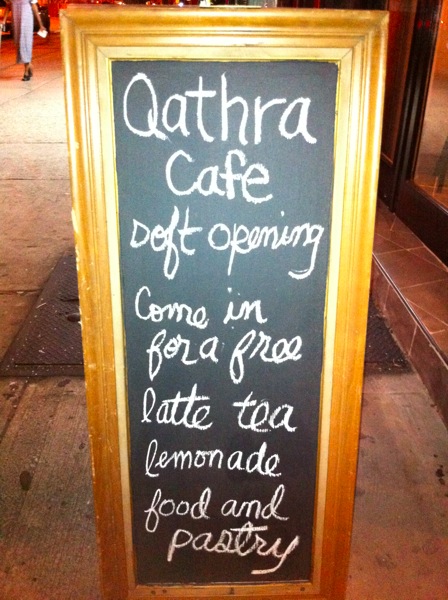 Qathra
Cafe
soft opening
Come in
for a free
latte tea
lemonade
food and
pastry